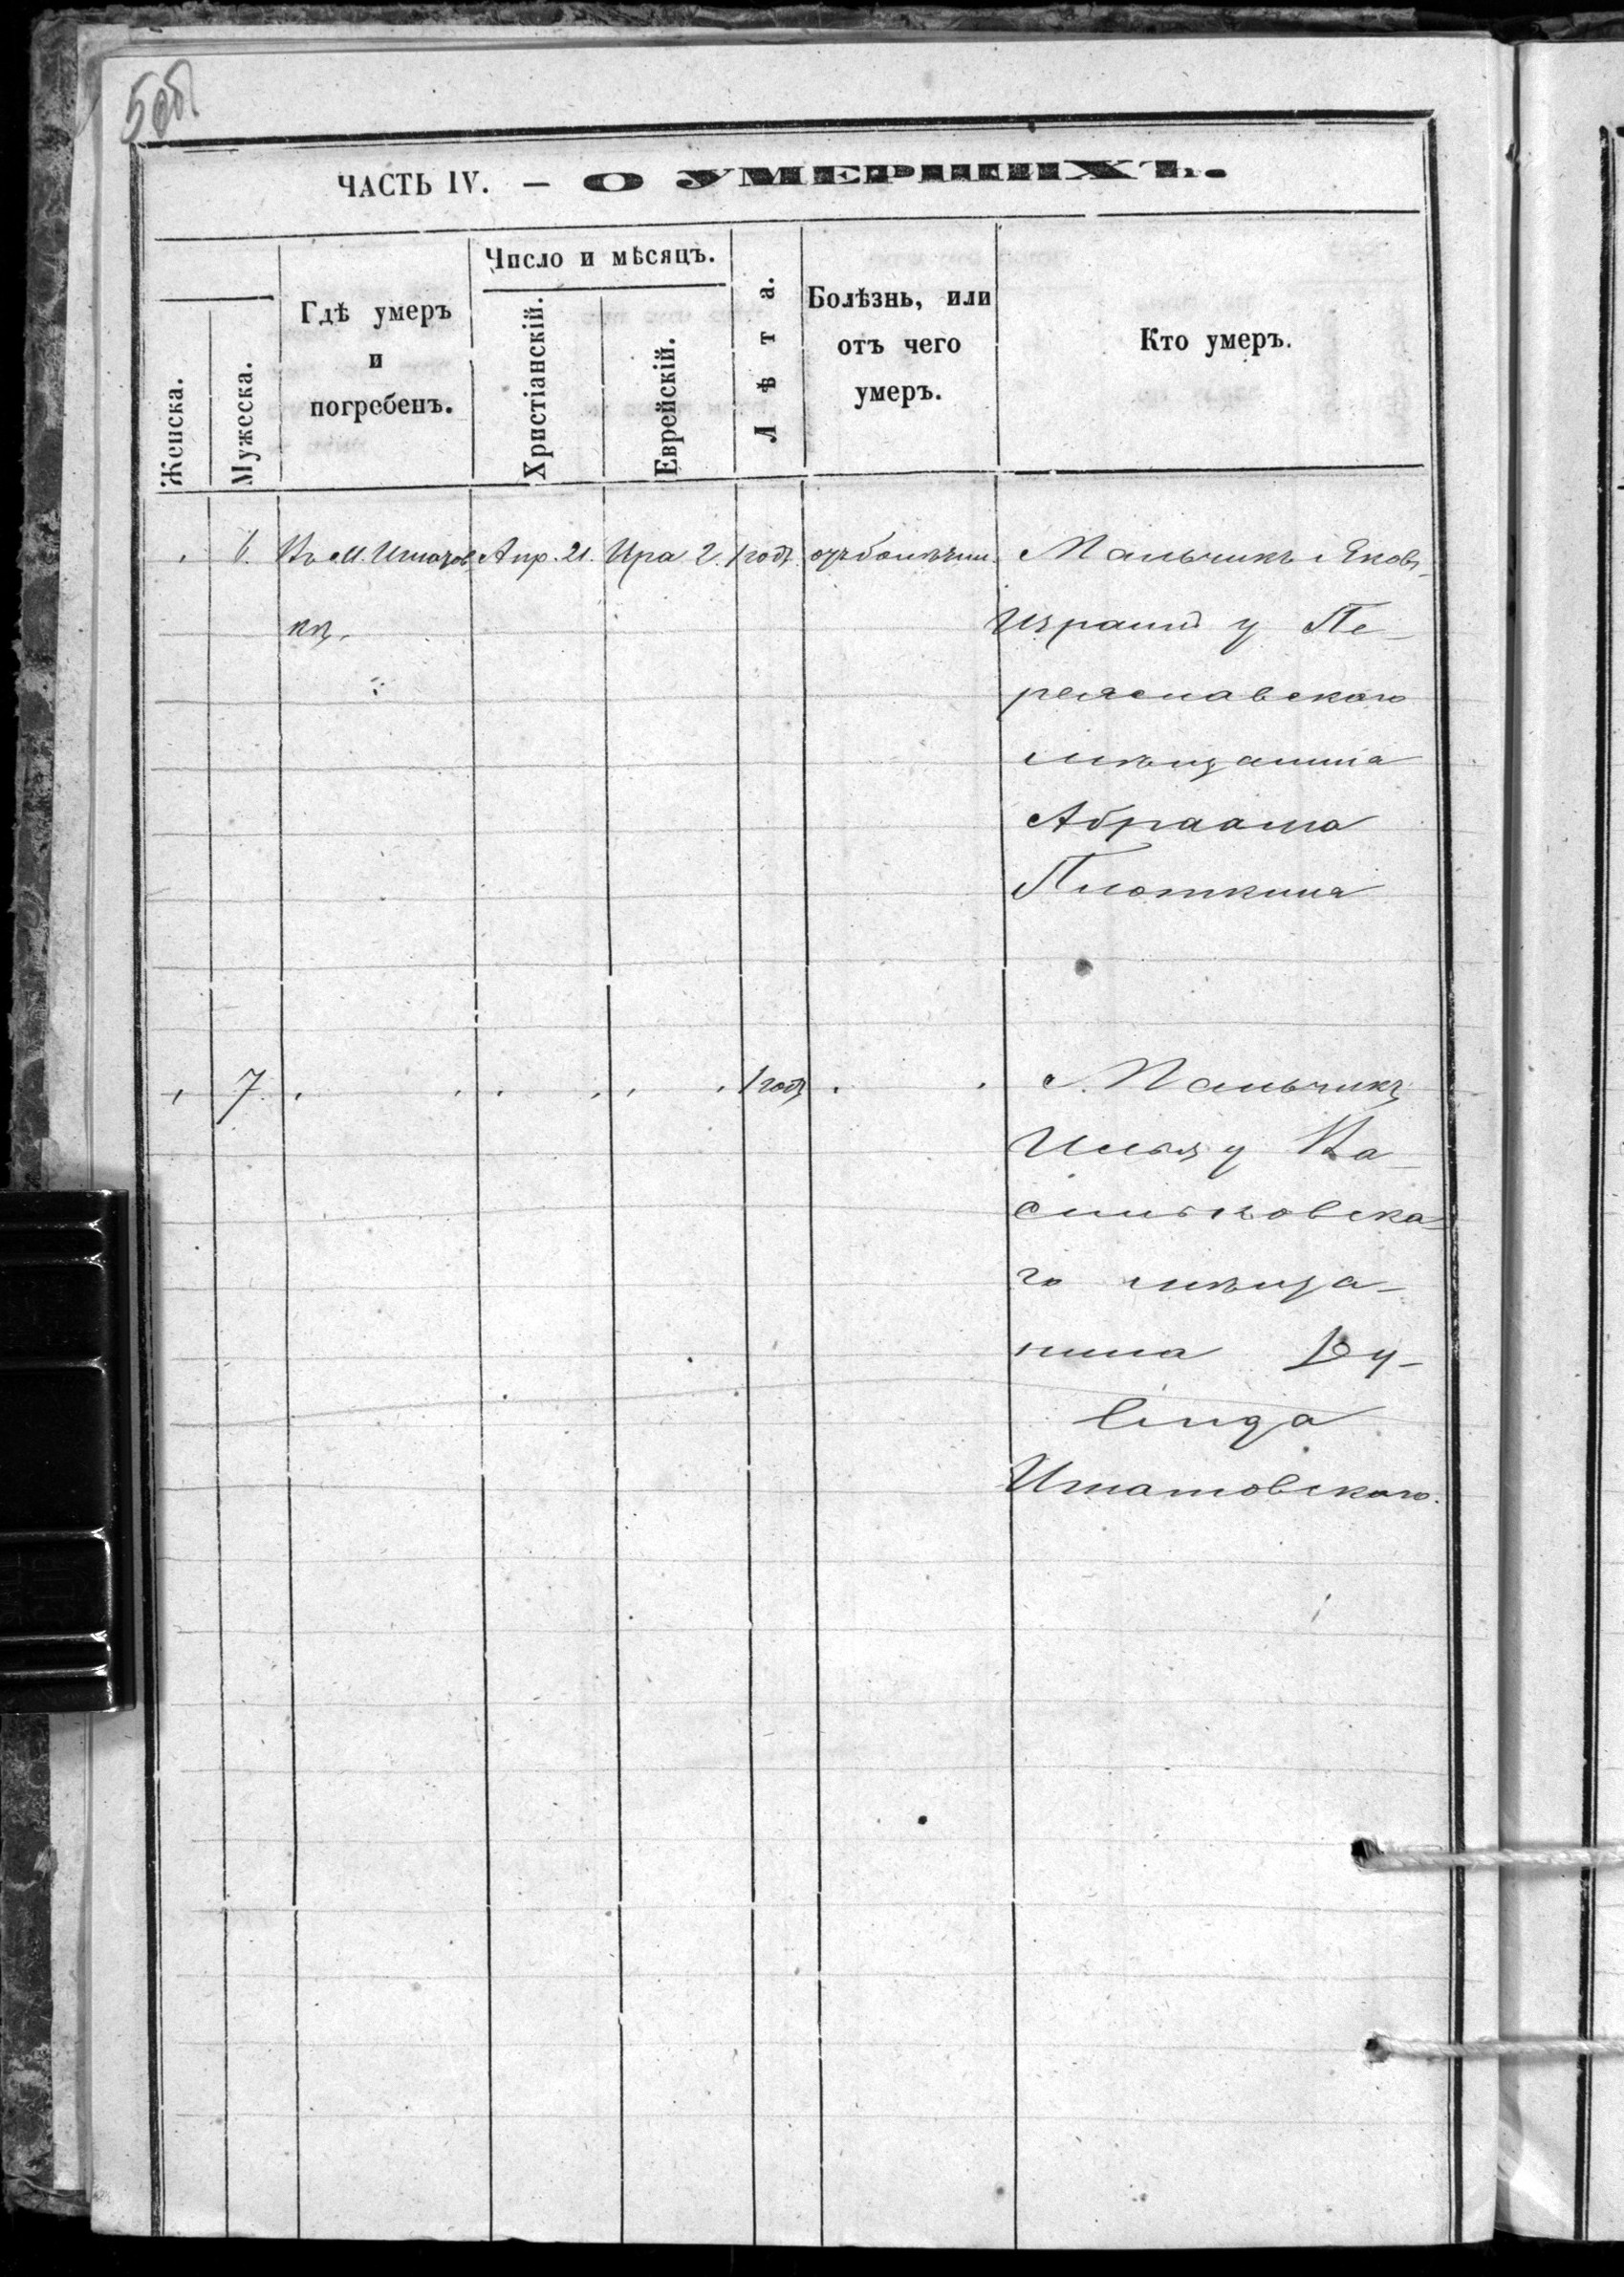 5об
ЧАСТЬ IV. — О УМЕРШИХЪ.
Женска.
Мужеска.
Гдѣ умеръ
и
погребенъ.
Число и мѣсяцъ.
Христіанскій.
Еврейскій.
Лѣта.
Болѣзнь, или
отъ чего
умеръ.
Кто умеръ.
6. Въ м. Игнатов Апр. 21. Ира 2. 1 годъ Мальчикъ Яковъ
кѣ. Израиль у Пе-
реяславского
мѣщанина
Абраама
Плоткина
7. 1 годъ Мальчикъ
у Ва-
сильковска-
го мѣща-
нина Ду-
вида
Игнатовского.